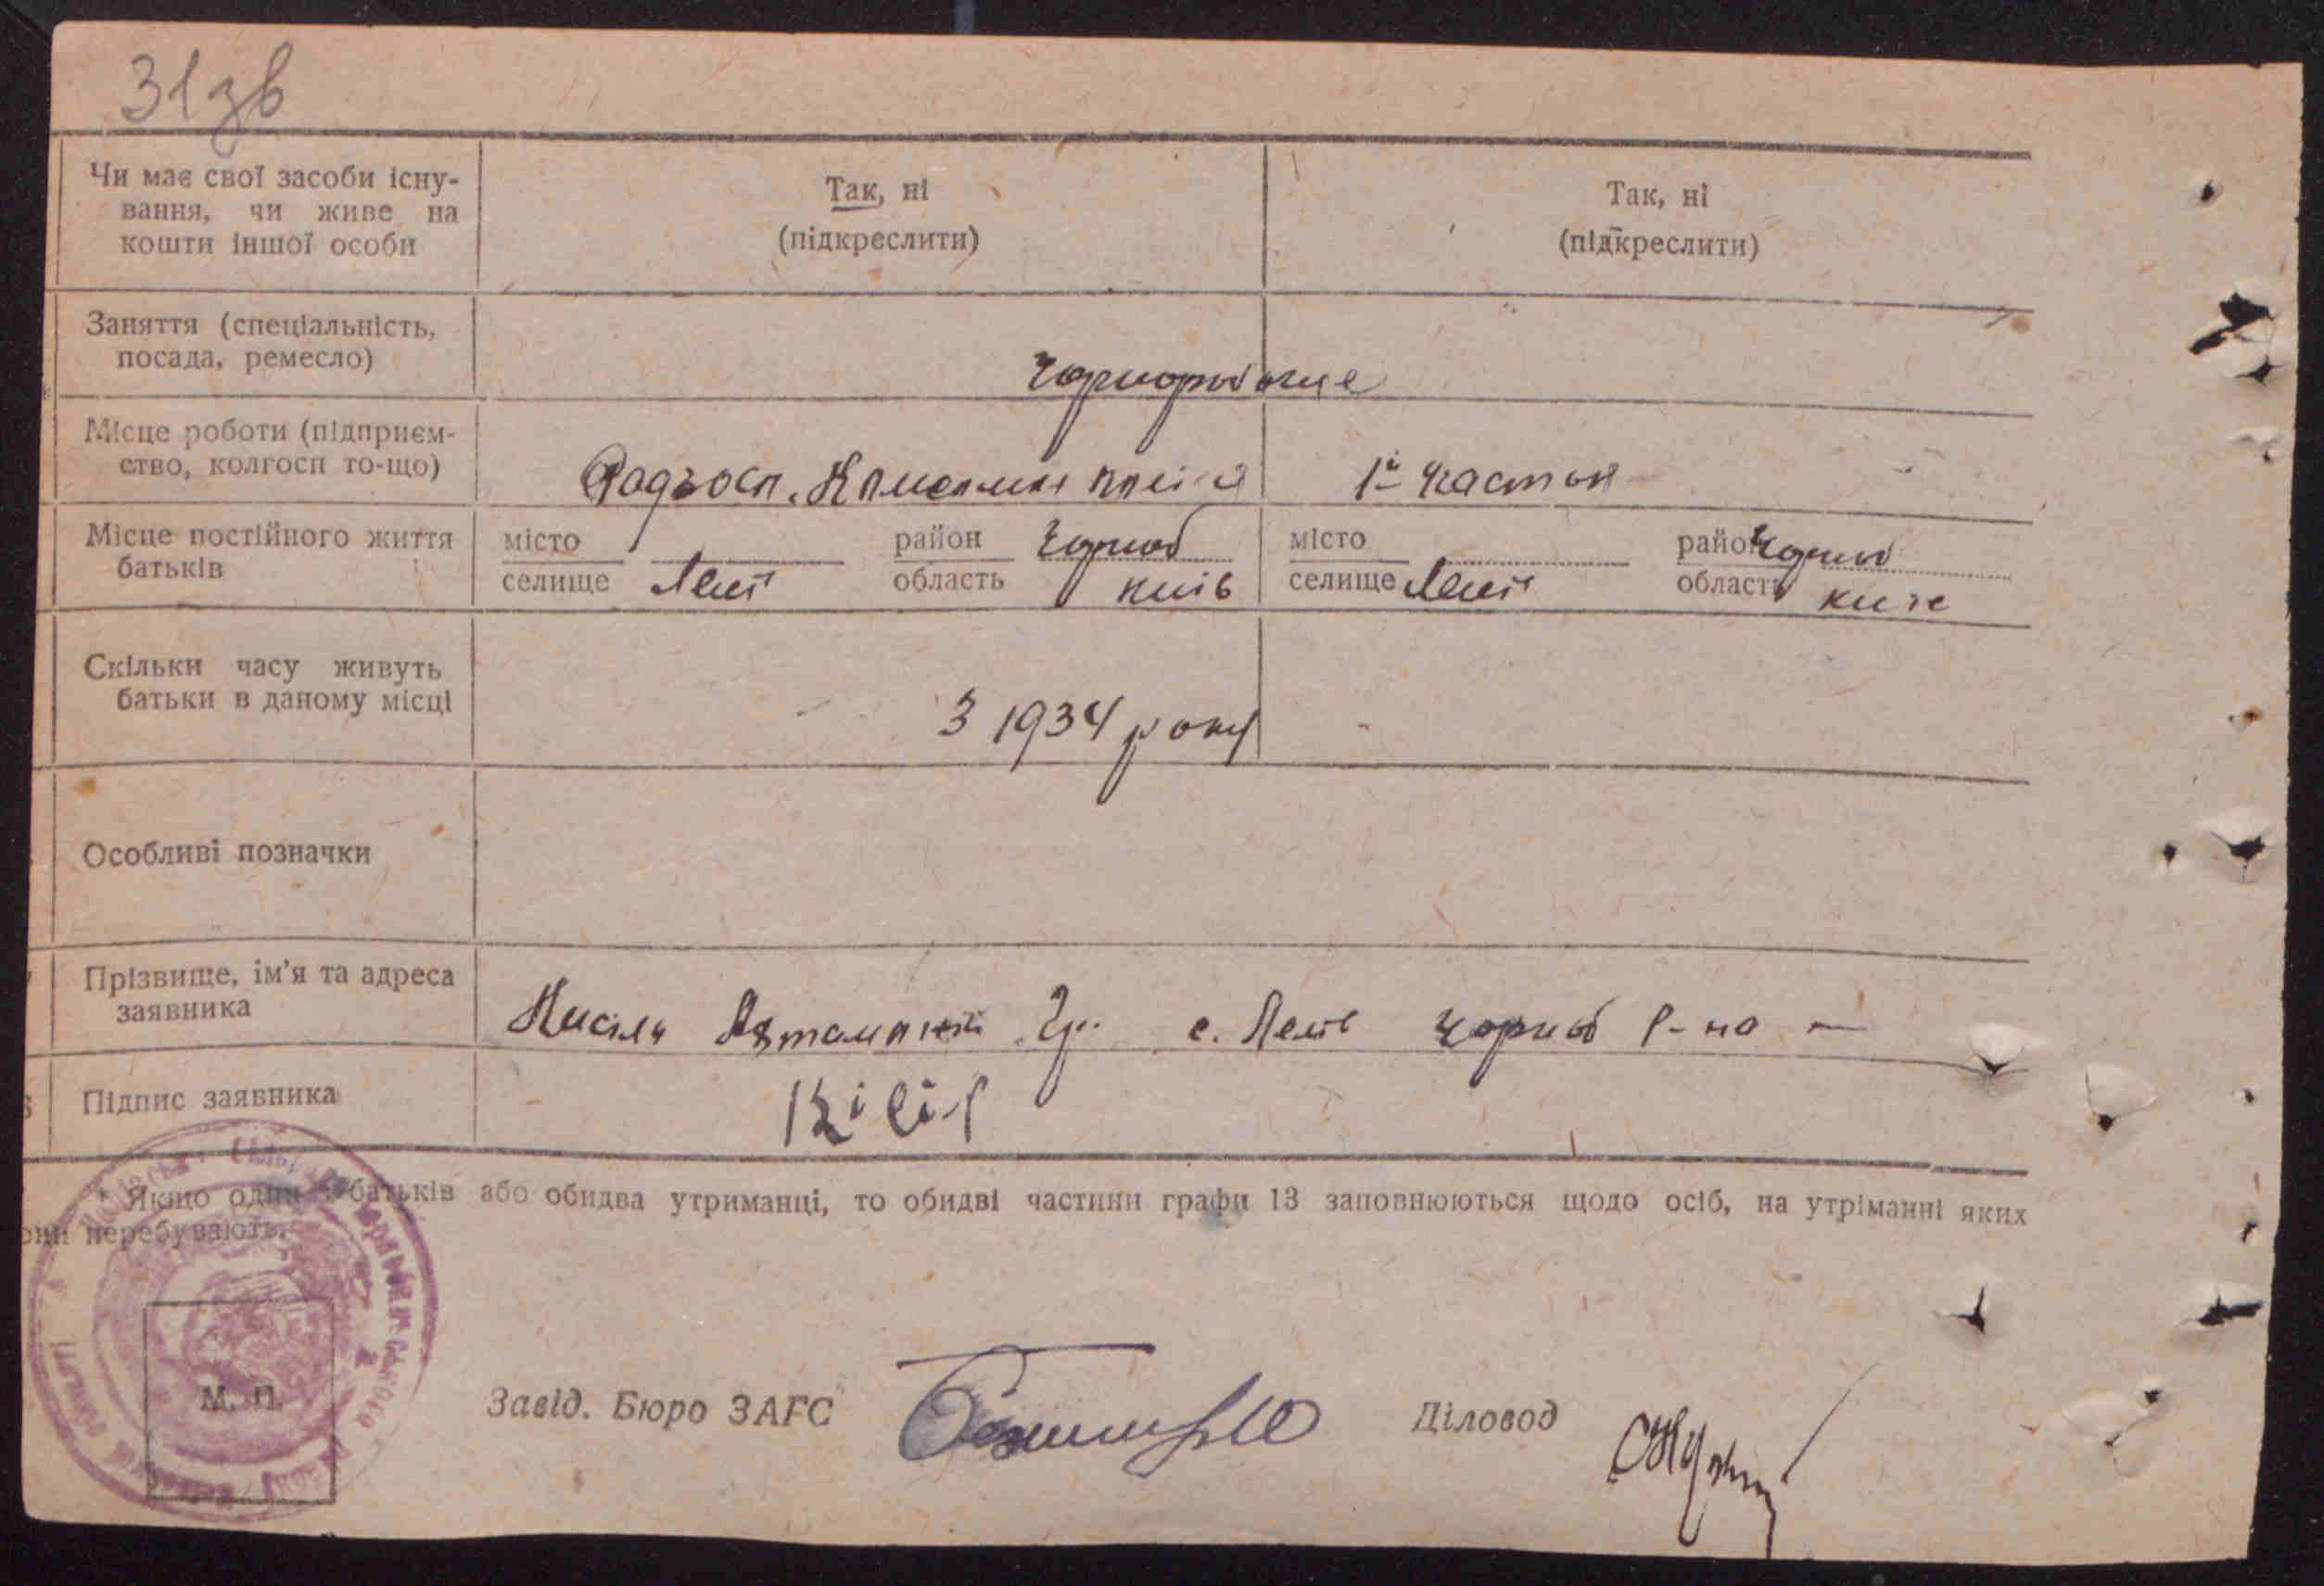 31зв
Чи має свої засоби існу-
вання, чи живе на
кошти іншої особи
Так, ні
(підкреслити)
Так, ні
(підкреслити)
Заняття (спеціальність,
посада, ремесло)
Місце роботи (підприєм-
ство, колгосп то-що)
Радгосп.
1й
Місце постійного життя
батьків
місто
селище Лелів
район Чорноб
область Київ
місто
селище Лелів
район Чорноб
область
Скільки часу живуть
батьки в даному місці
З 1934 року
Особливі позначки
Прізвище, ім'я та адреса
заявника
Гр. с. Лелів Чорноб р-на
Підпис заявника
* Якщо один з батьків або обидва утриманці, то обидві частини графи 13 заповнюються щодо осіб, на утріманні яких
они перебувають.
М. П.
Завід. Бюро ЗАГС
Діловод